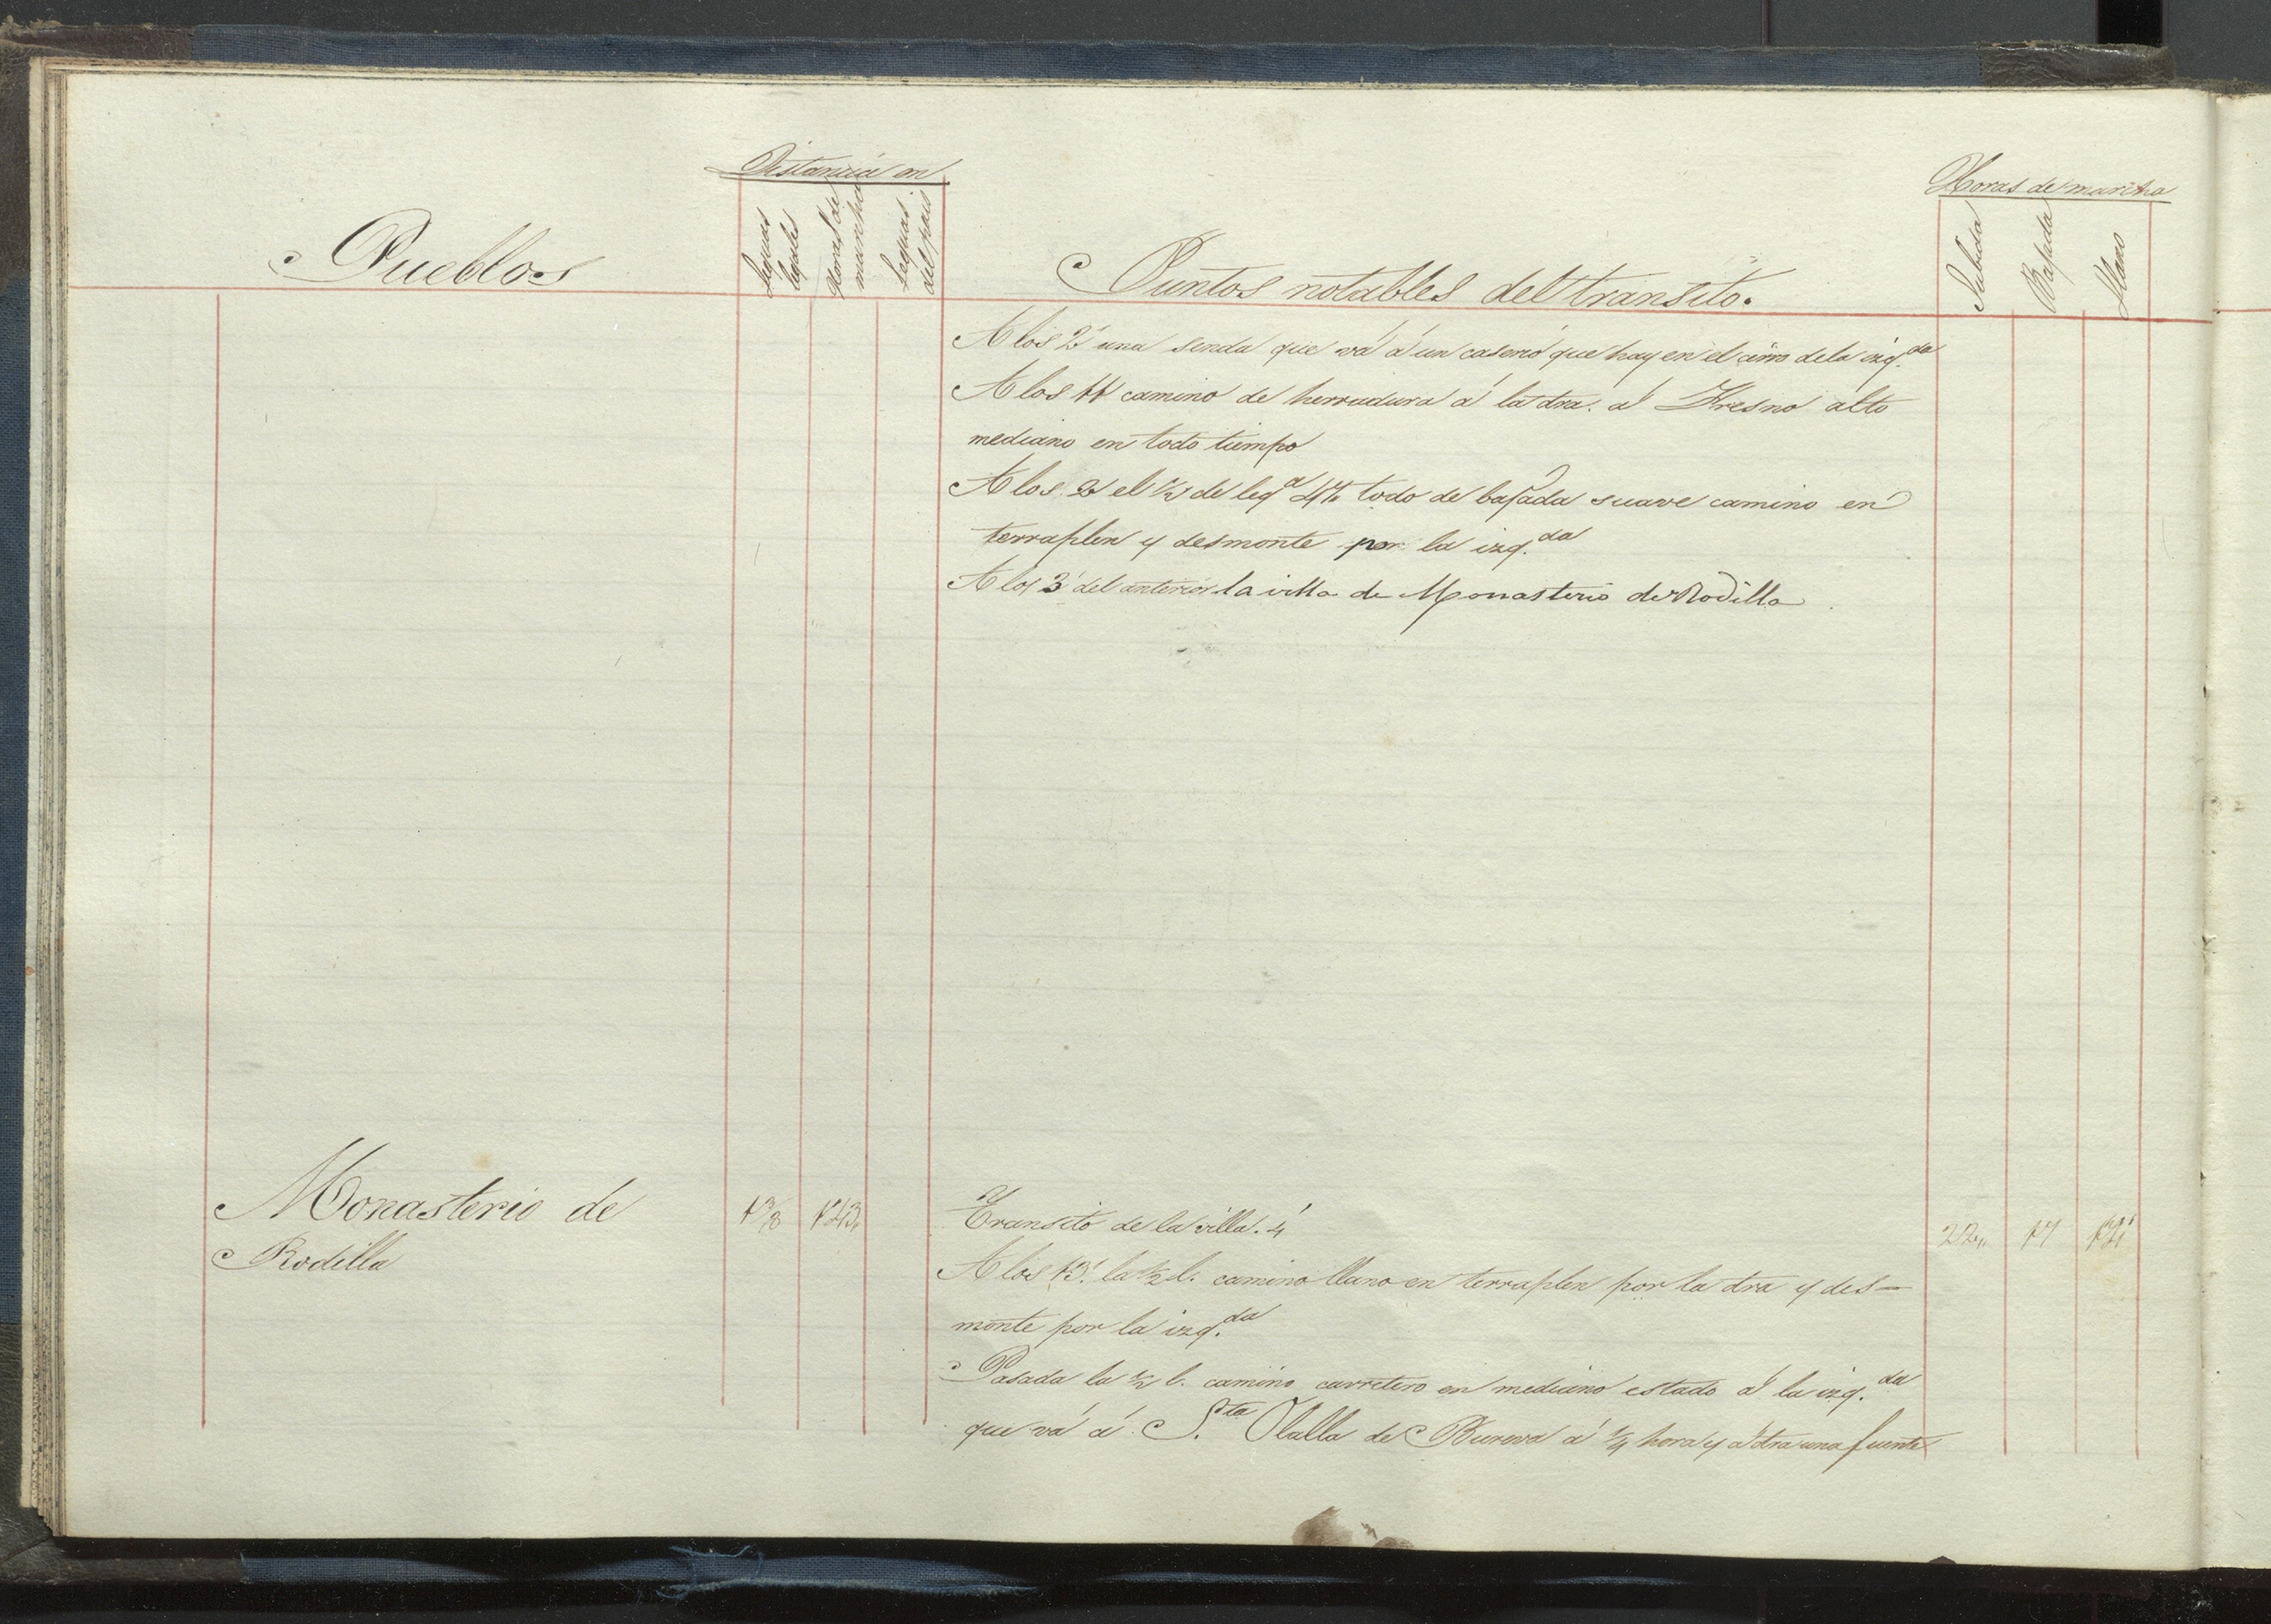 Distancia en
Horas de marcha
Pueblos
Leguas legales
Horas de marcha
Leguas del pais
Puntos notables del transito.
Subida
Bajada
Llano
A los 2' una senda que vá á un caserio que hay en el cerro de la izq.da
A los 11 camino de herradura á la dra. á Fresno alto
mediano en todo tiempo
A los 2' el ½ de leg.a todo de bajada suave camino en
terraplen y desmonte por la izq.da
A los 3' del anterior la villa de Monasterio de Rodilla
Monasterio de
Rodilla
1 3/8
1 43,,
Transito de la villa. 4'
22,,
17
A los 13' la ½ l. camino llano en terraplen por la dra y des-
monte por la izq.da
Pasada la ½ l. camino carretero en mediano estado á la izq.da
que vá á S.ta Olalla de Bureva á ¼ hora y á dra una fuente